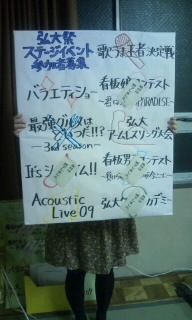 弘大祭
ステージイベント
参加者募集
歌うま王者決定戦
バラエティショー
看板娘コンテスト
〜君は RADISE〜
最強グルは
だ!!?
〜3rd season〜
弘大
アームレスリング大会
It's ん!!
看板男コンテスト
Acoustic
Live 09
弘大 デミー